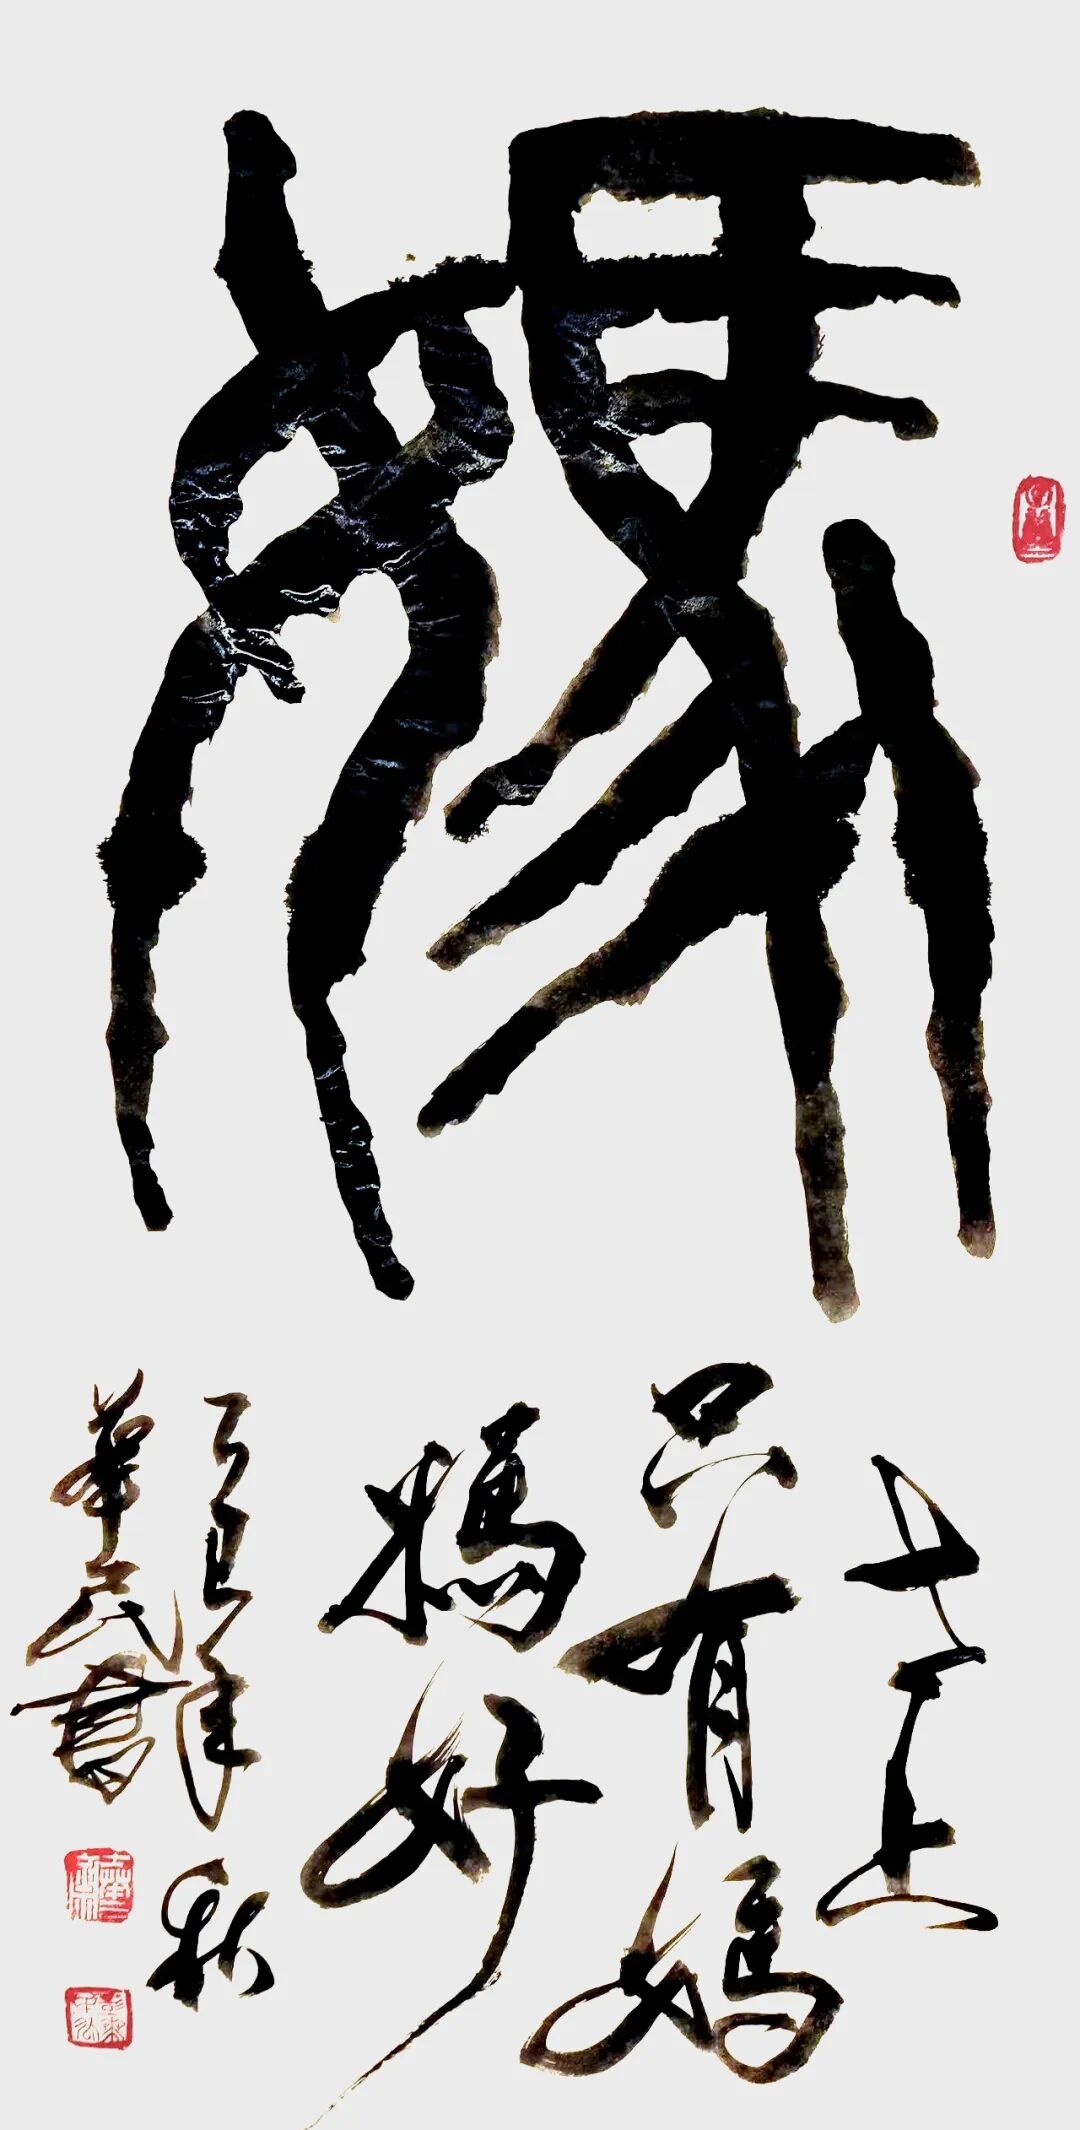 媽
世上
只有媽
媽好
乙巳年秋
華民書